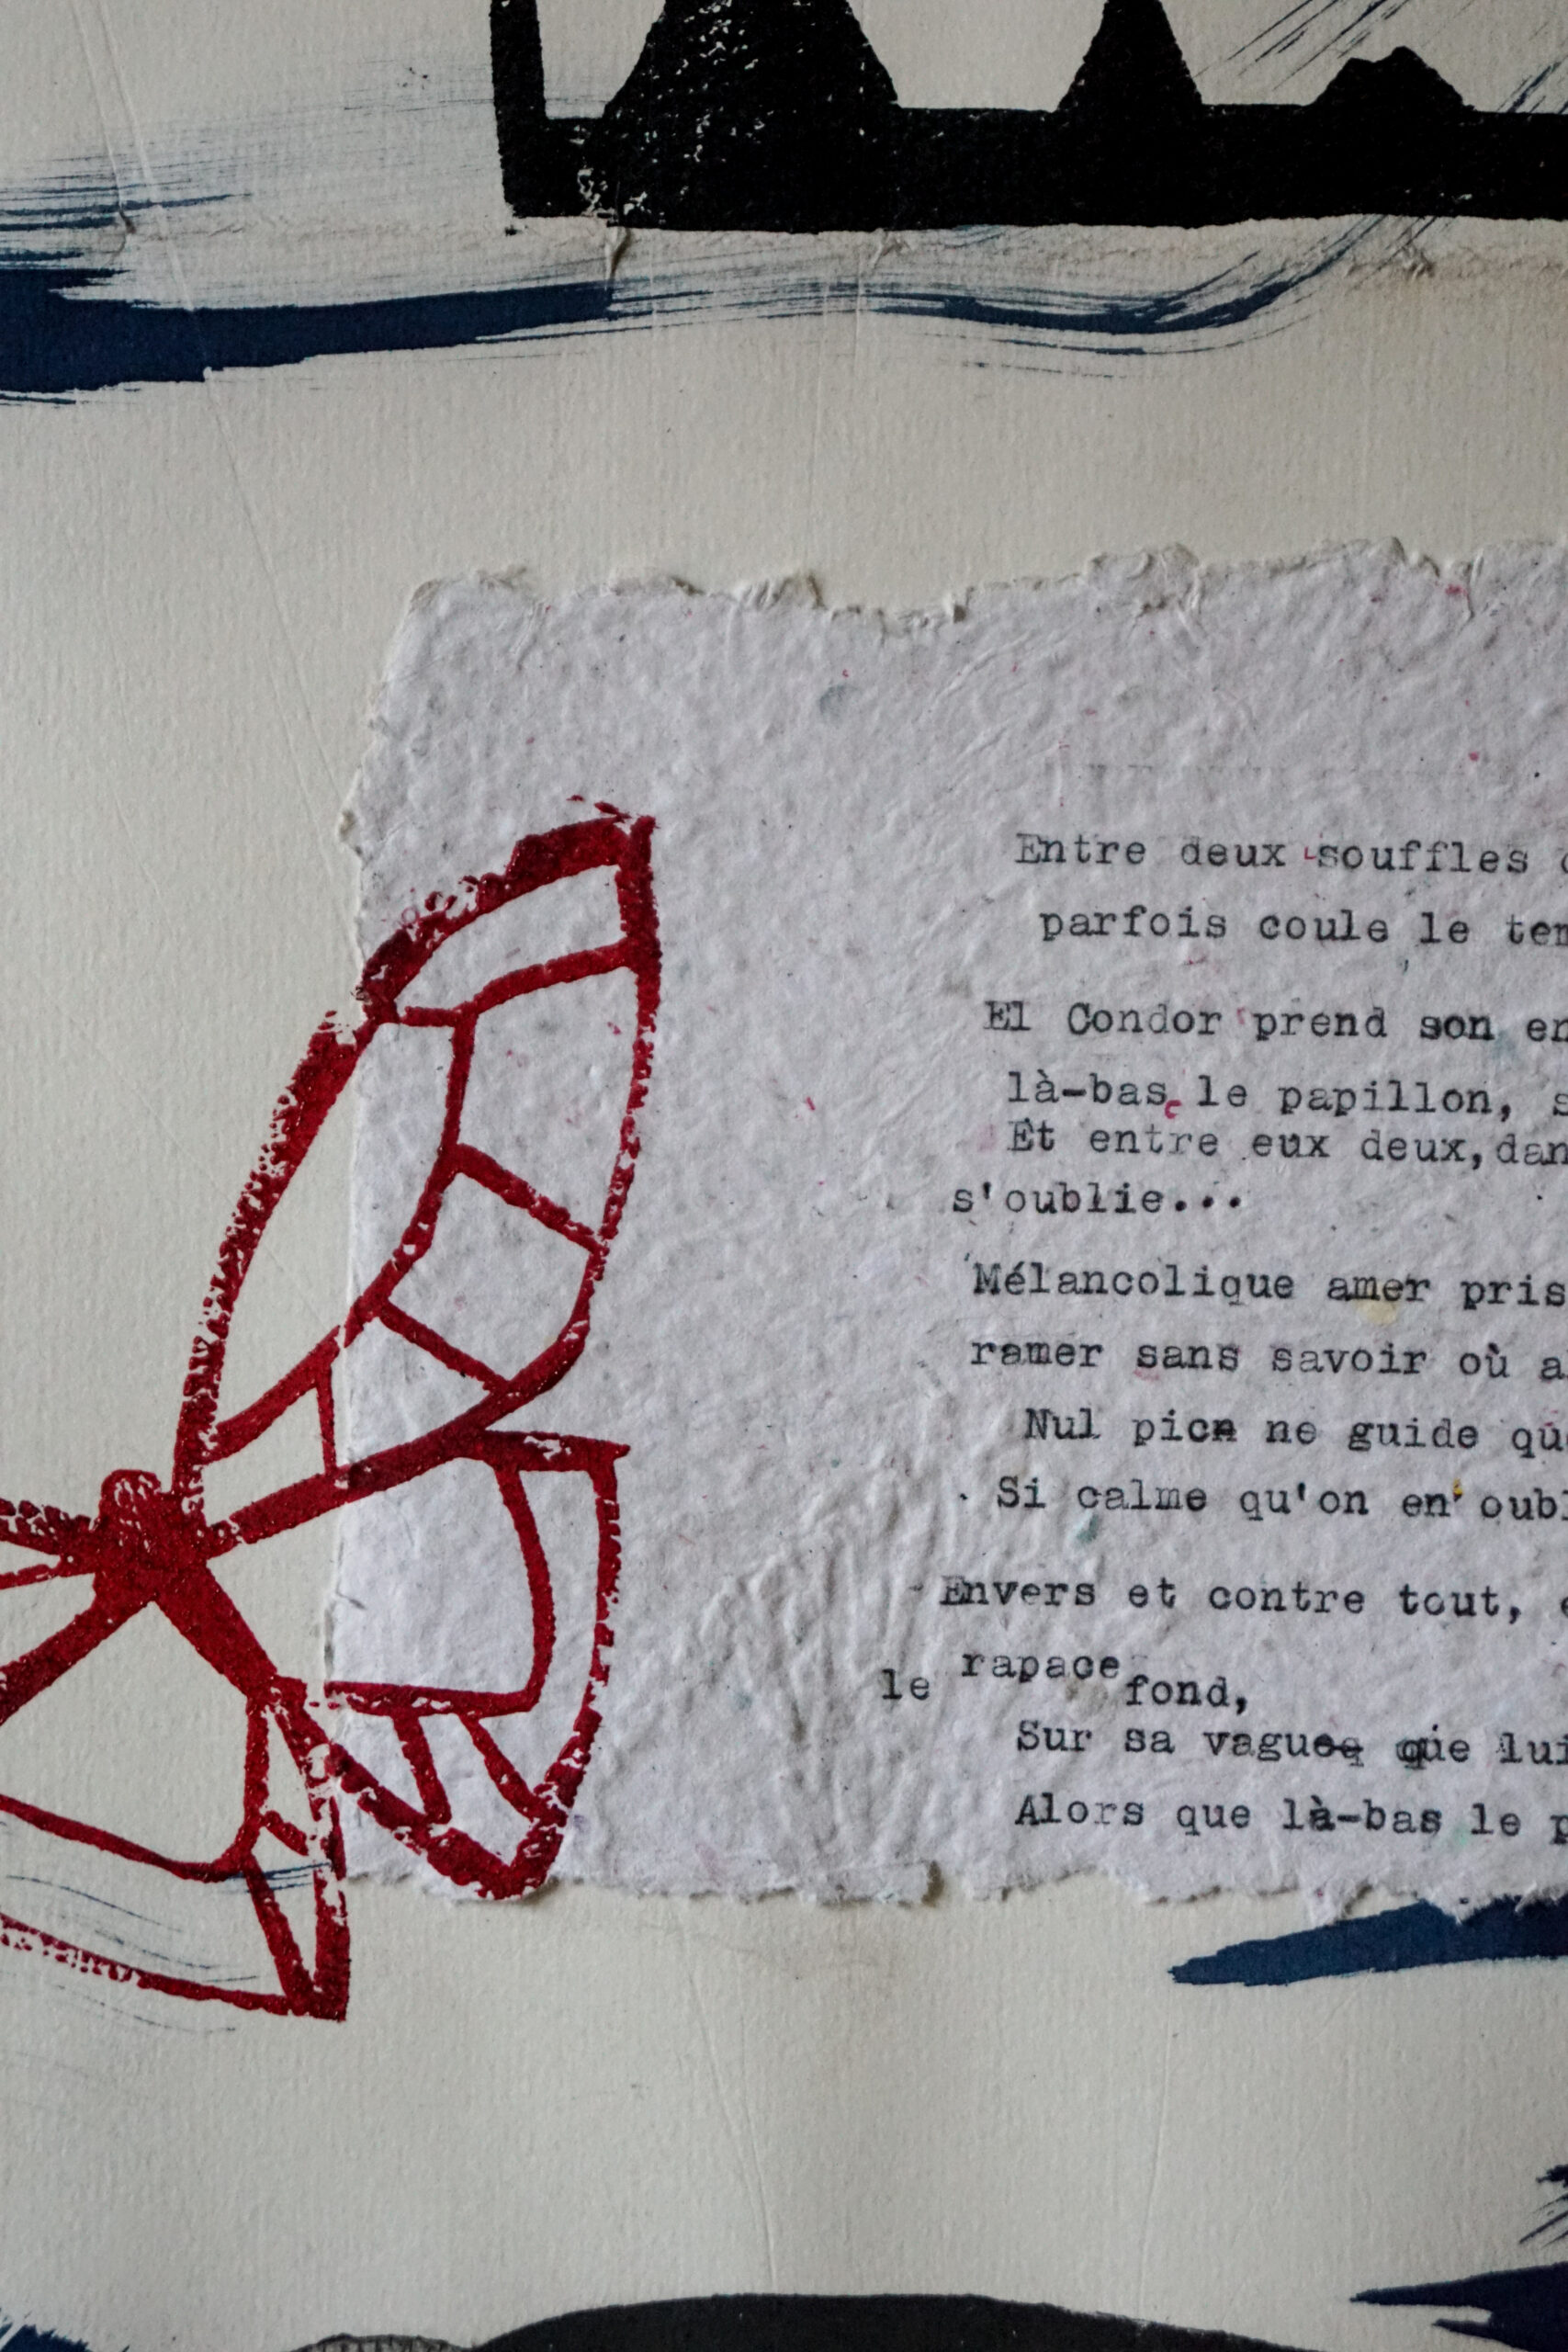 Entre deux souffles
parfois coule le
El Condor prend son
là-bas le papillon,
Et entre eux deux,
s'oublie...
Mélancolique amer
ramer sans savoir où
Nul ne guide
Si calme qu'on en
Envers et contre tout,
le rapace fond,
Sur sa vague que
Alors que là-bas le